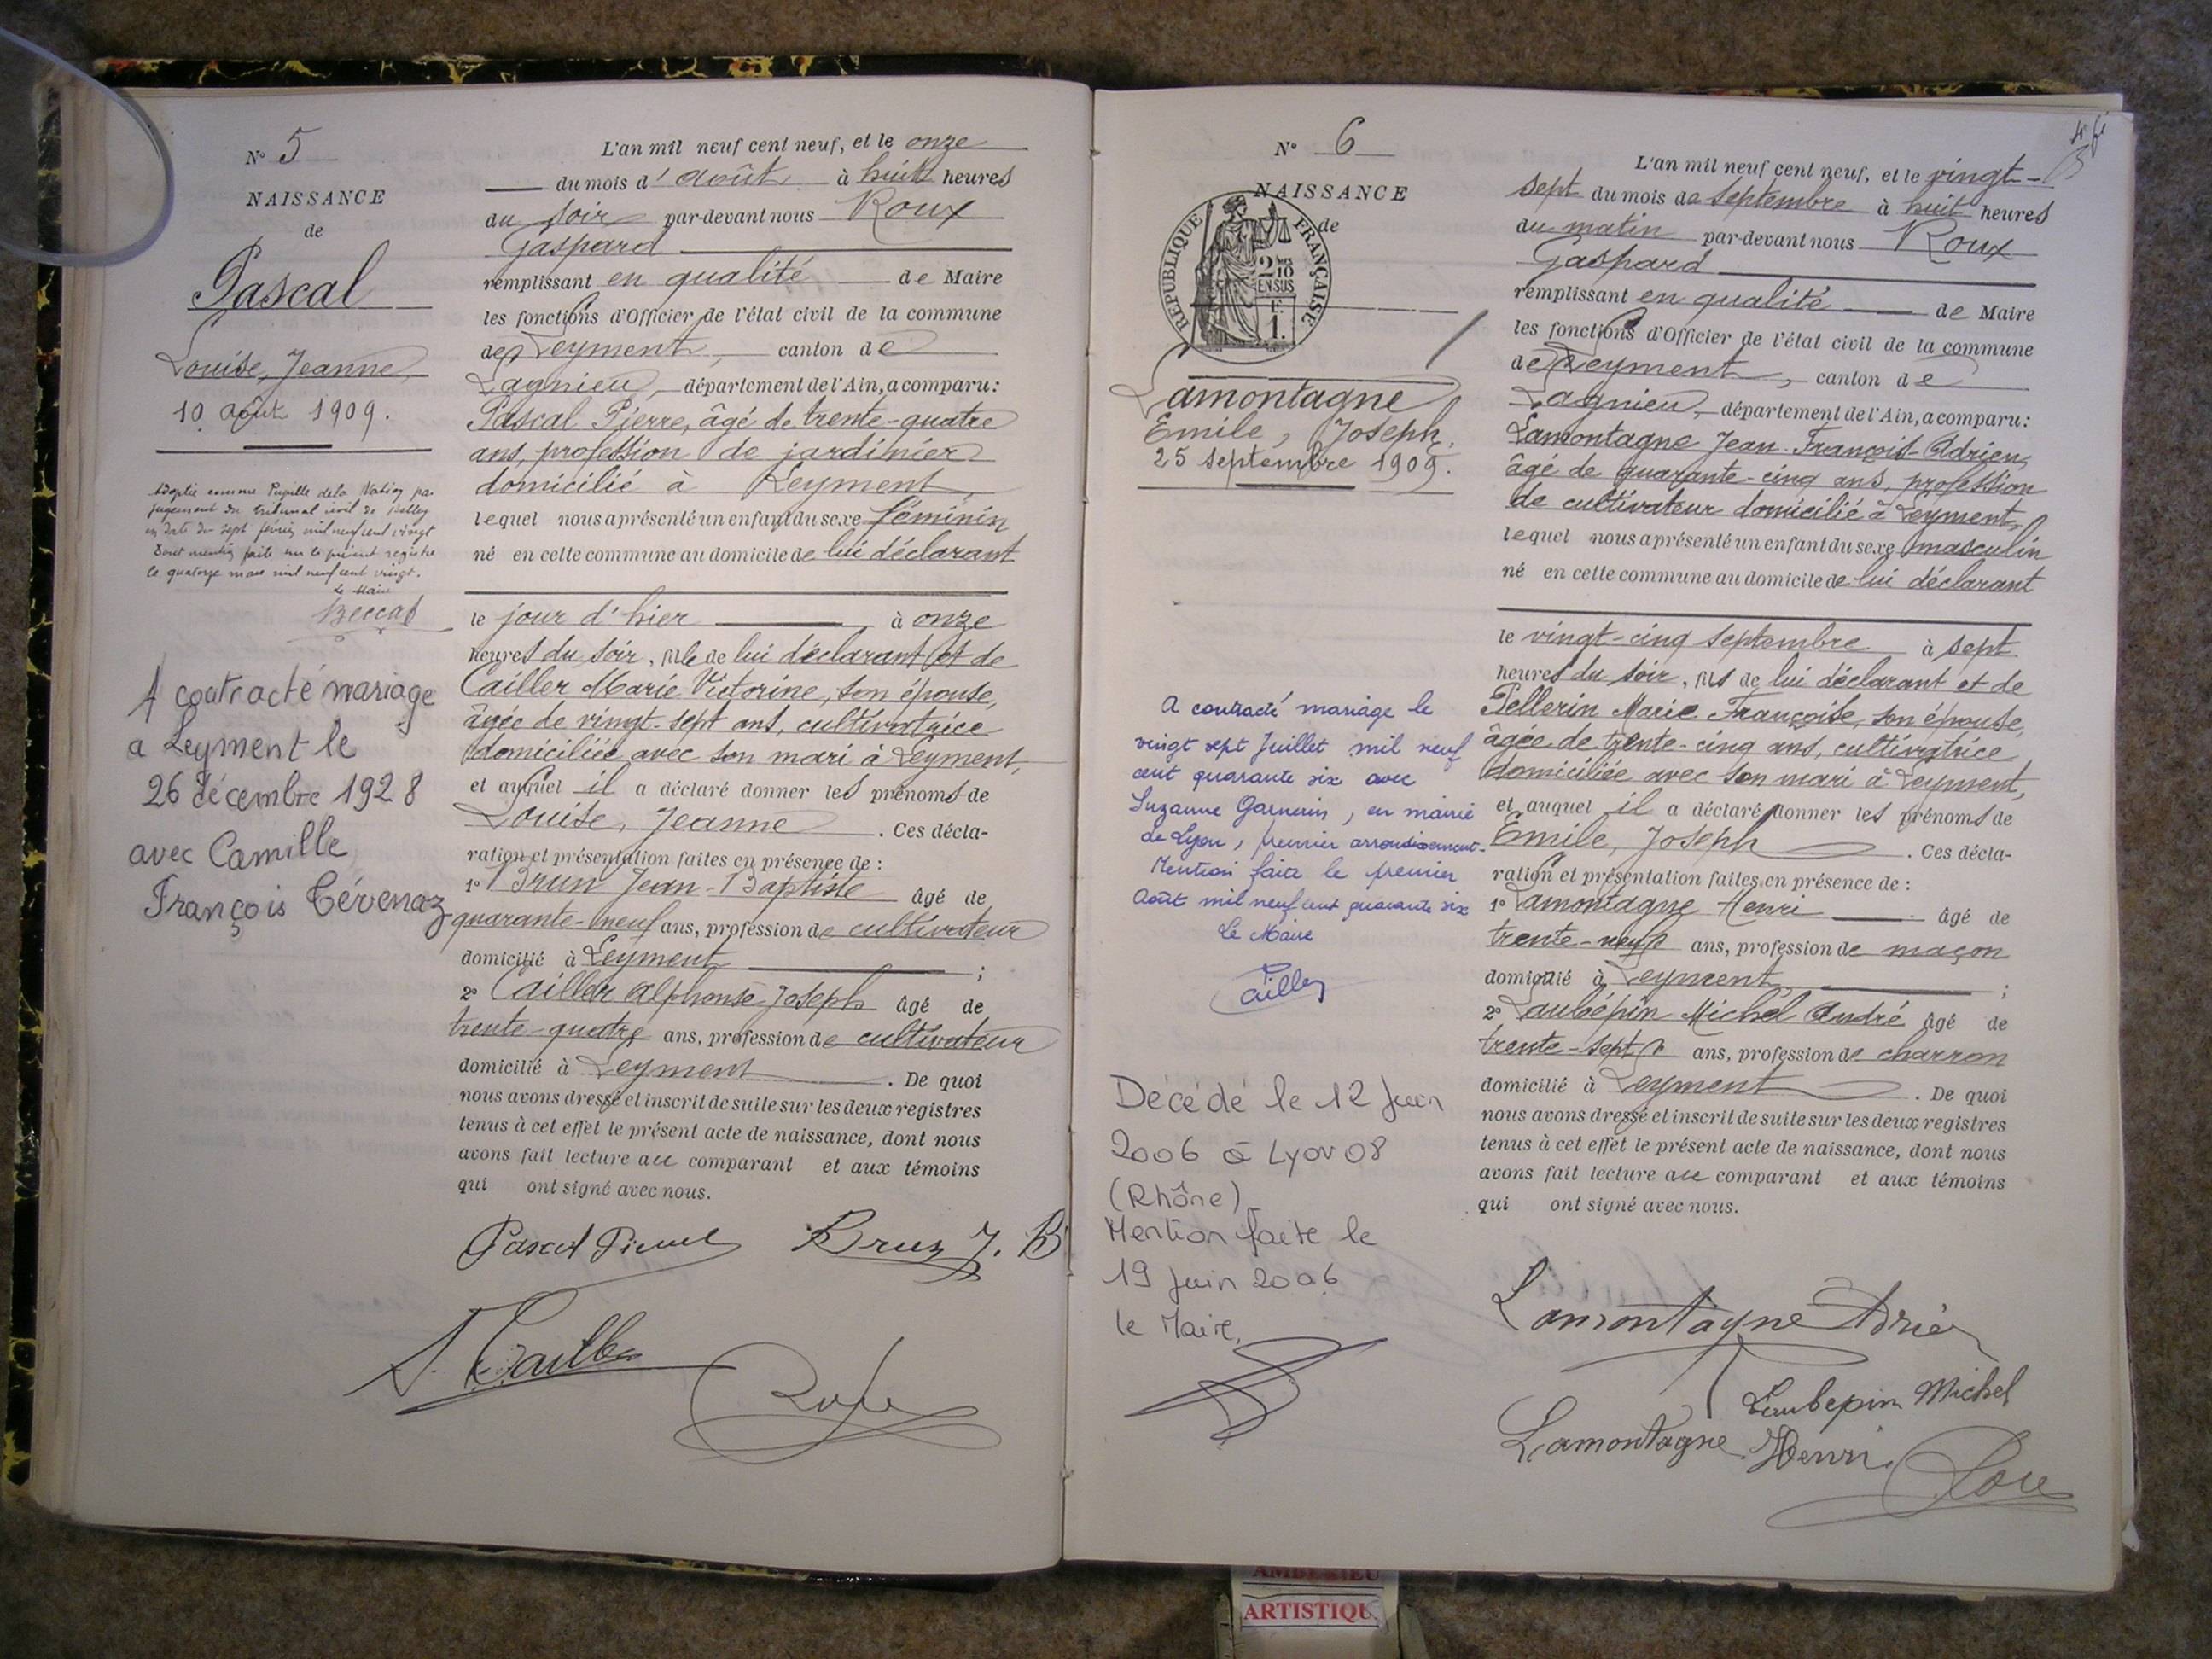 N° 5
NAISSANCE
de
Pascal
Louise, Jeanne
10 août 1909.
Adoptée comme Pupille de la Nation par
jugement du tribunal civil de Belley
en date du sept février mil neuf cent vingt
Dont mention faite sur le présent registre
le quatorze mars mil neuf cent vingt.
Le Maire
A contracté mariage
a Leyment le
26 décembre 1928
avec Camille,
François Tévenaz
L'an mil neuf cent neuf, et le onze
du mois d'août à huit heures
du soir par-devant nous Roux
Gaspard
remplissant en qualité de Maire
les fonctions d'Officier de l'état civil de la commune
de Leyment, canton de
Lagnieu, département de l'Ain, a comparu:
Pascal Pierre, âgé de trente-quatre
ans, profession de jardinier
domicilié à Leyment,
lequel nous a présenté un enfant du sexe féminin
né en cette commune au domicile de lui déclarant
le jour d'hier, à onze
heures du soir, fille de lui déclarant et de
Cailler Marie Victorine, son épouse,
âgée de vingt-sept ans, cultivatrice
domiciliée avec son mari à Leyment,
et auquel il a déclaré donner les prénoms de
Louise, Jeanne. Ces décla-
ration et présentation faites en présence de :
1° Brun Jean-Baptiste âgé de
quarante-neuf ans, profession de cultivateur
domicilié à Leyment ;
2° Cailler Alphonse Joseph âgé de
trente-quatre ans, profession de cultivateur
domicilié à Leyment. De quoi
nous avons dressé et inscrit de suite sur les deux registres
tenus à cet effet le présent acte de naissance, dont nous
avons fait lecture au comparant et aux témoins
qui ont signé avec nous.
Pascal Pierre Brun J. B
A. Cailler
Roux
N° 6
NAISSANCE
de
RÉPUBLIQUE FRANÇAISE
2 10
EN SUS
1 F.
Lamontagne
Emile, Joseph.
25 septembre 1909.
A contracté mariage le
vingt sept Juillet mil neuf
cent quarante six avec
Suzanne Garnerin, en mairie
de Lyon, premier arrondissement.
Mention faite le premier
Août mil neuf cent quarante six
Le Maire
Cailler
Décédé le 12 Juin
2006 à Lyon 08
(Rhône)
Mention faite le
19 Juin 2006
le Maire,
L'an mil neuf cent neuf, et le vingt-
sept du mois de septembre à huit heures
du matin par-devant nous Roux
Gaspard
remplissant en qualité de Maire
les fonctions d'Officier de l'état civil de la commune
de Leyment, canton de
Lagnieu, département de l'Ain, a comparu:
Lamontagne Jean-François-Adrien,
âgé de quarante-cinq ans, profession
de cultivateur domicilié à Leyment,
lequel nous a présenté un enfant du sexe masculin
né en cette commune au domicile de lui déclarant
le vingt-cinq septembre à sept
heures du soir, fils de lui déclarant et de
Pellerin Marie Françoise, son épouse,
âgée de trente-cinq ans, cultivatrice
domiciliée avec son mari à Leyment,
et auquel il a déclaré donner les prénoms de
Emile, Joseph. Ces décla-
ration et présentation faites en présence de :
1° Lamontagne Henri âgé de
trente-neuf ans, profession de maçon
domicilié à Leyment ;
2° Laubépin Michel André âgé de
trente-sept ans, profession de charron
domicilié à Leyment. De quoi
nous avons dressé et inscrit de suite sur les deux registres
tenus à cet effet le présent acte de naissance, dont nous
avons fait lecture au comparant et aux témoins
qui ont signé avec nous.
Lamontagne Adrien
Laubepin Michel
Lamontagne Henri
Roux
AMBERIEU
ARTISTIQU